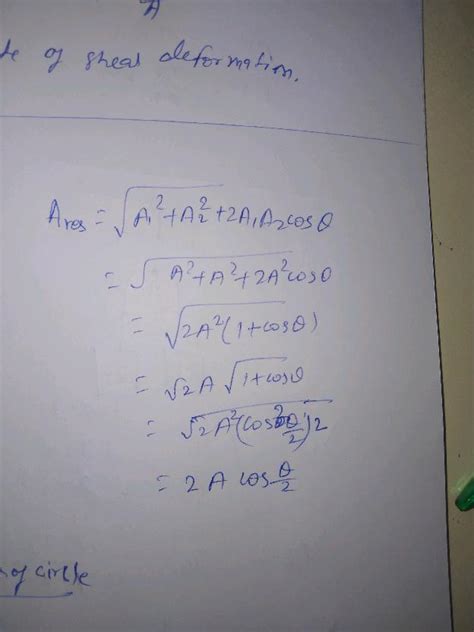 A
of shear deformation.
Ares = √A₁²+A₂²+2A₁A₂cosθ
= √A²+A²+2A²cosθ
= √2A²(1+cosθ)
= √2 A √1+cosθ
= √2A²(cos²θ/2)2
= 2 A cos θ/2
of circle